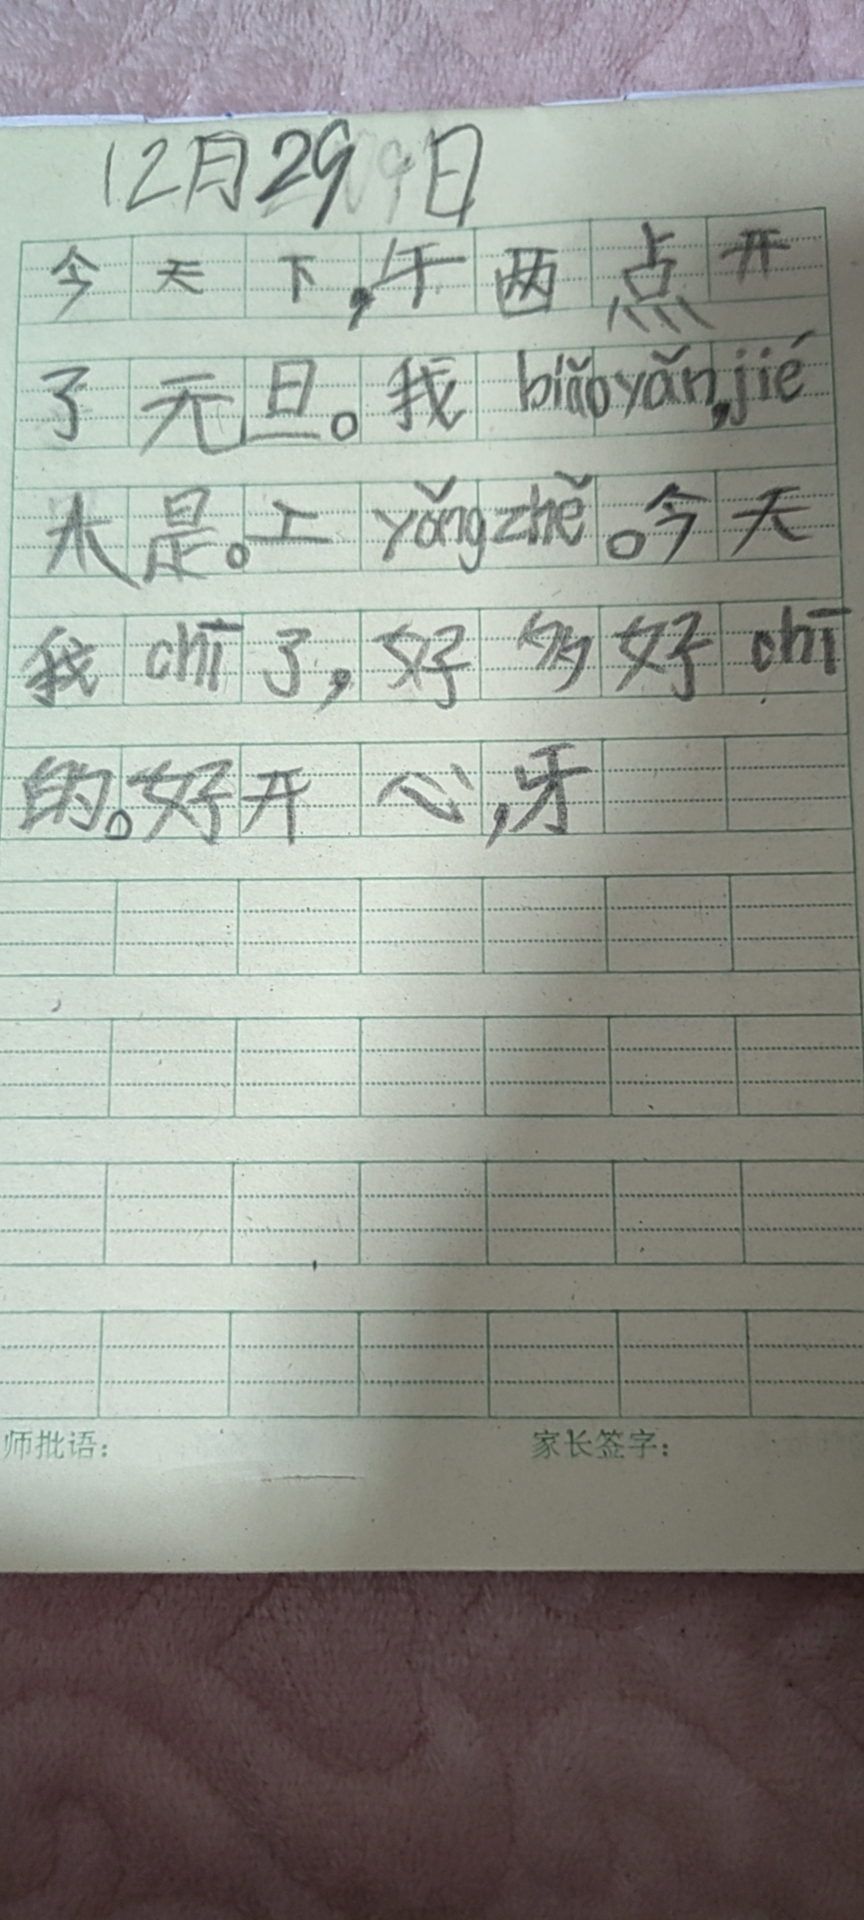 12月29日
今天下,午两点开
了元旦。我biǎoyǎn,jié
木是。工yǒngzhě。今天
我chī了,好多好chī
的。好开心,牙
师批语： 家长签字：